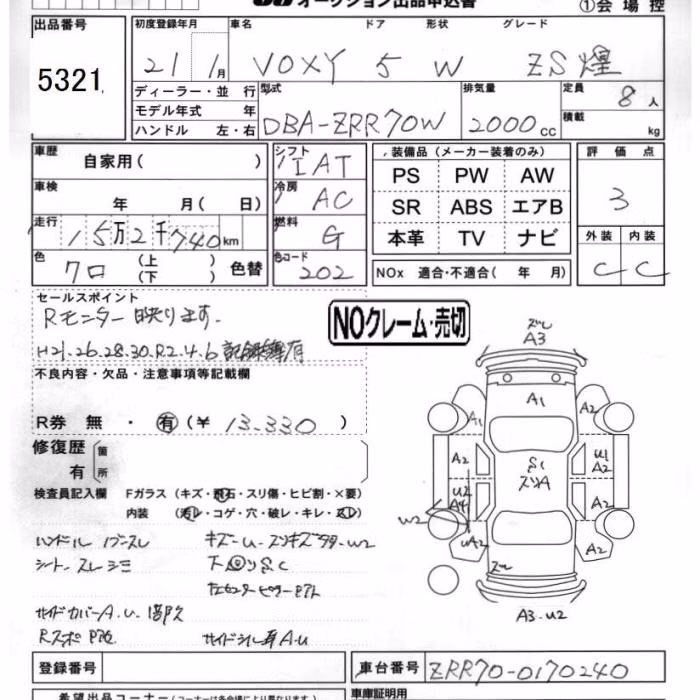 オークション出品申込書
①会場控
出品番号 初度登録年月 車名 ドア 形状 グレード
5321 21 1月 VOXY 5 W ZS煌
ディーラー・並行 型式 排気量 定員 8人
モデル年式 年 DBA-ZRR70W 2000cc 積載 kg
ハンドル 左・右
車歴 自家用( ) シフト IAT 装備品(メーカー装着のみ) 評価点
車検 年 月( 日) 冷房 AC PS PW AW 3
走行 15万2千740km 燃料 G SR ABS エアB 外装 内装
本革 TV ナビ C C
色 クロ (上)(下) 色替 色コード 202 NOx 適合・不適合( 年 月)
セールスポイント
Rモニター映ります.
H21.26.28.30.R2.4.6 記録簿有
NOクレーム・売切
不良内容・欠品・注意事項等記載欄
R券 無・有(¥ 13.330 )
修復歴 箇所
有
検査員記入欄 Fガラス(キズ・飛石・スリ傷・ヒビ割・×要)
内装 (汚レ・コゲ・穴・破レ・キレ・スレ)
ハンドル ノブスレ
シート スレ シミ
サイドカバーA.U.
ズレ
A3
A1
A1 A2
A2 U1
A2
U2
A4
A2
W2
UA2 A2
ズレ
A3.U2
登録番号 車台番号 ZRR70-0170240
希望出品コーナー(コーナーは各会場により異なります) 車庫証明用